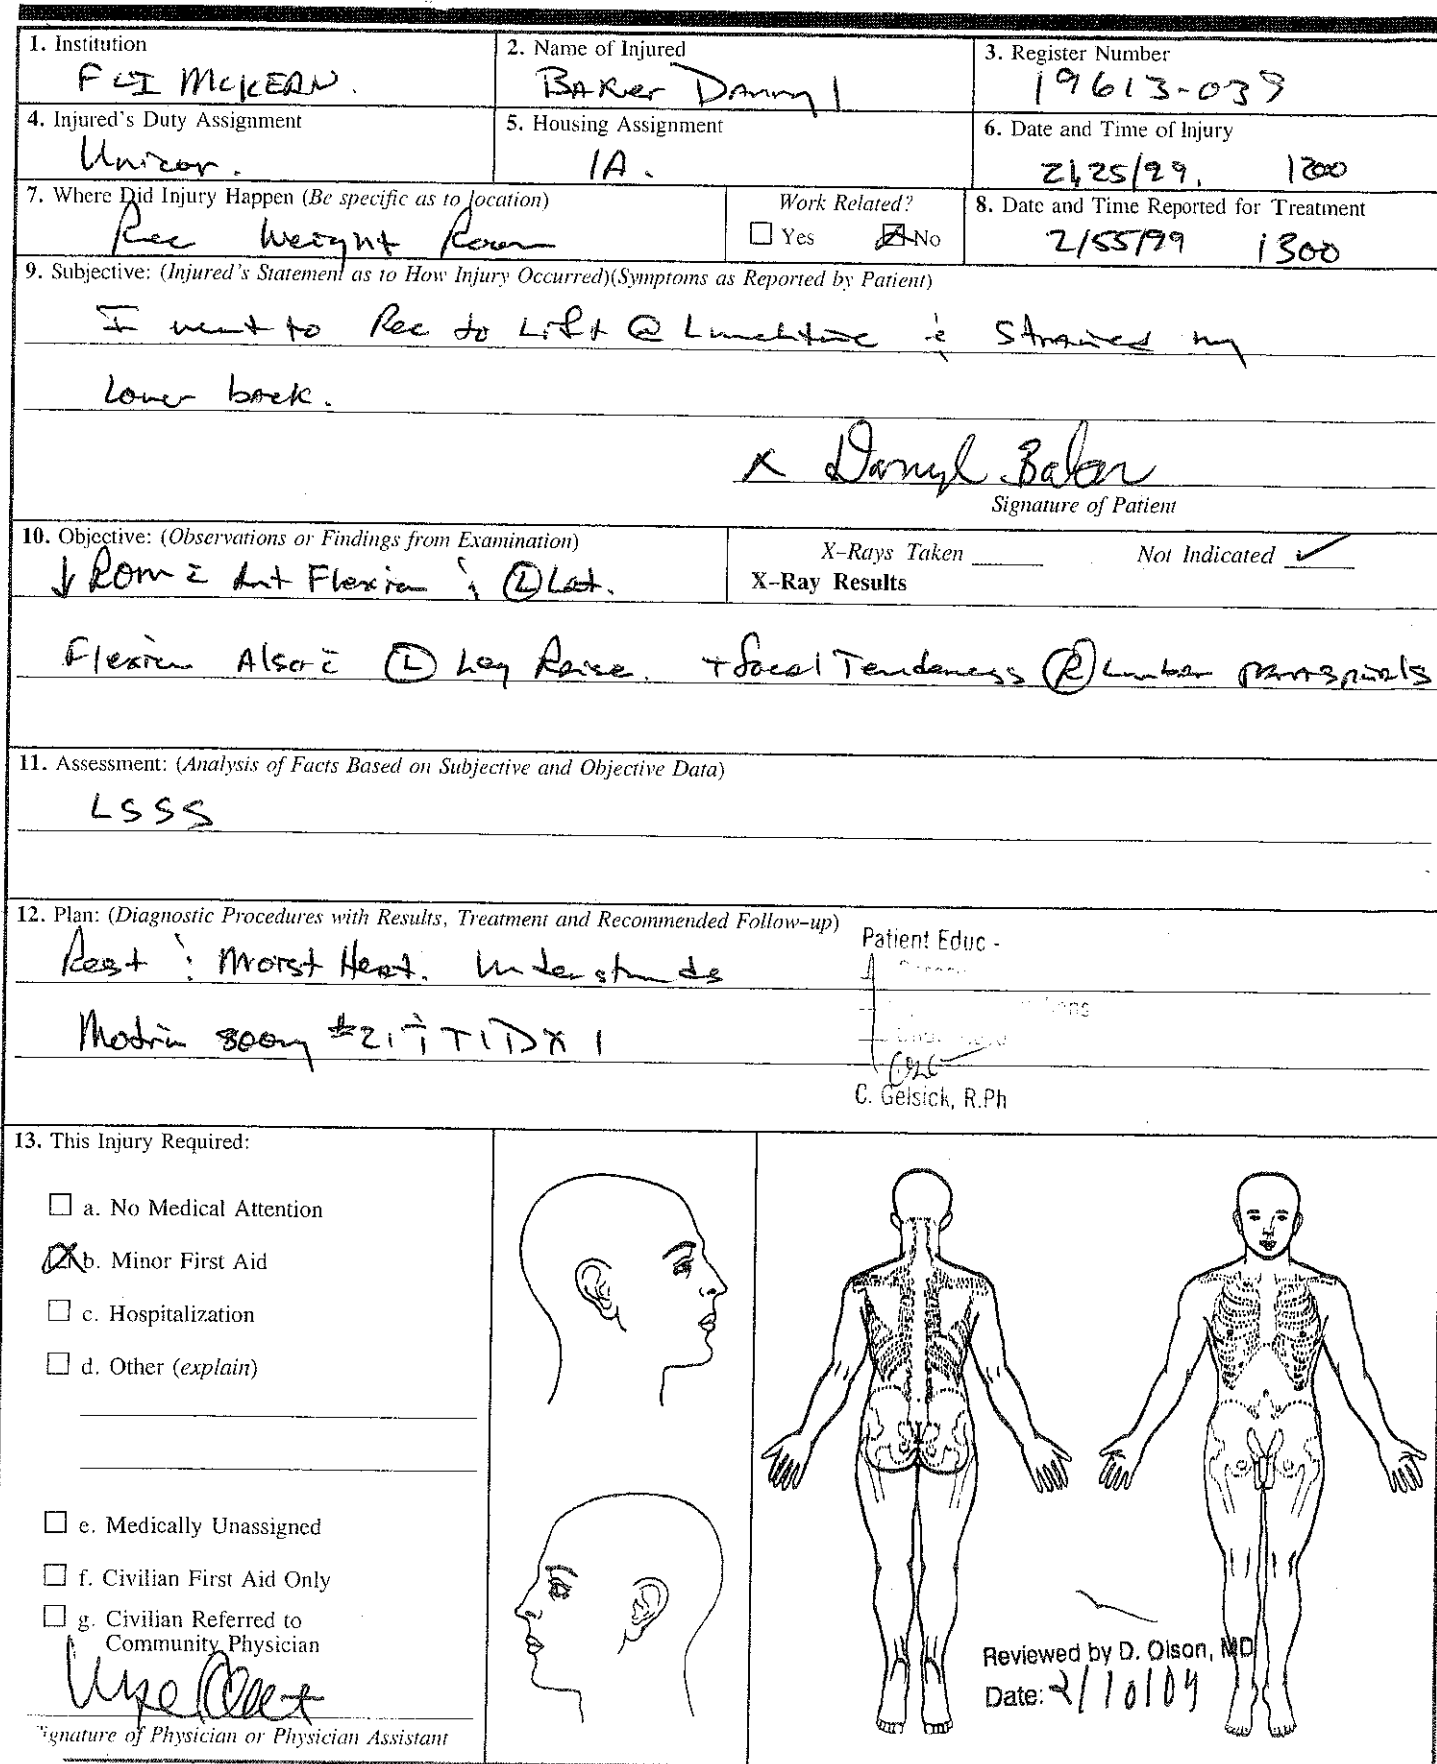 1. Institution
FCI McKEAN.
2. Name of Injured
BAKer Darryl
3. Register Number
19613-039
4. Injured's Duty Assignment
Unicor.
5. Housing Assignment
1A.
6. Date and Time of Injury
2/25/99, 1200
7. Where Did Injury Happen (Be specific as to location)
Rec Weight Room
Work Related?
☐ Yes ☒ No
8. Date and Time Reported for Treatment
2/55/99 1300
9. Subjective: (Injured's Statement as to How Injury Occurred)(Symptoms as Reported by Patient)
I went to Rec to Lift @ Lunchtime & Strained my
Lower back.
X Darryl Baker
Signature of Patient
10. Objective: (Observations or Findings from Examination)
↓ ROM c̄ Ant Flexion & Ⓛ Lat.
X-Rays Taken Not Indicated ✓
X-Ray Results
Flexion Also c̄ Ⓛ Leg Raise. + focal Tenderness Ⓡ Lumbar paraspinals
11. Assessment: (Analysis of Facts Based on Subjective and Objective Data)
LSSS
12. Plan: (Diagnostic Procedures with Results, Treatment and Recommended Follow-up)
Rest & Moist Heat. Understands
Motrin 800mg #21 ī TID X 1
Patient Educ -
C. Gelsick, R.Ph
13. This Injury Required:
☐ a. No Medical Attention
☒ b. Minor First Aid
☐ c. Hospitalization
☐ d. Other (explain)
☐ e. Medically Unassigned
☐ f. Civilian First Aid Only
☐ g. Civilian Referred to
Community Physician
Signature of Physician or Physician Assistant
Reviewed by D. Olson, MD
Date: 2/10/09